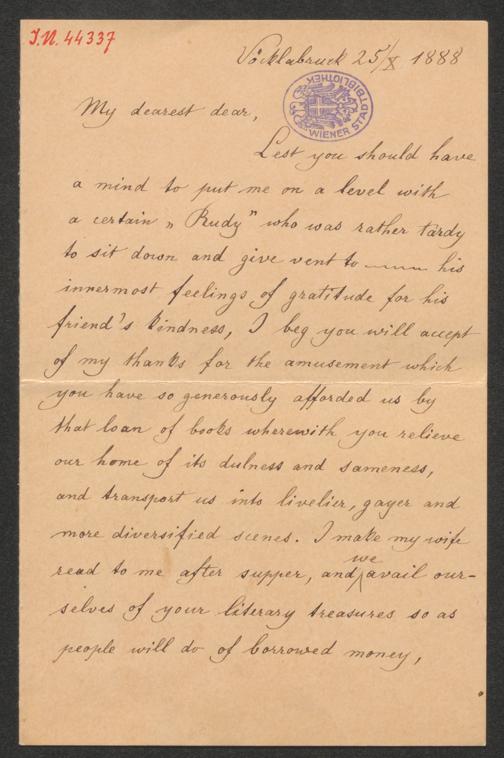 I.N. 44337
Vöcklabruck 25/X 1888
WIENER STADTBIBLIOTHEK
My dearest dear,
Lest you should have
a mind to put me on a level with
a certain „Rudy" who was rather tardy
to sit down and give vent to ——— his
innermost feelings of gratitude for his
friend's kindness, I beg you will accept
of my thanks for the amusement which
you have so generously afforded us by
that loan of books wherewith you relieve
our home of its dulness and sameness,
and transport us into livelier, gayer and
more diversified scenes. I make my wife
read to me after supper, and we avail our-
selves of your literary treasures so as
people will do of borrowed money,